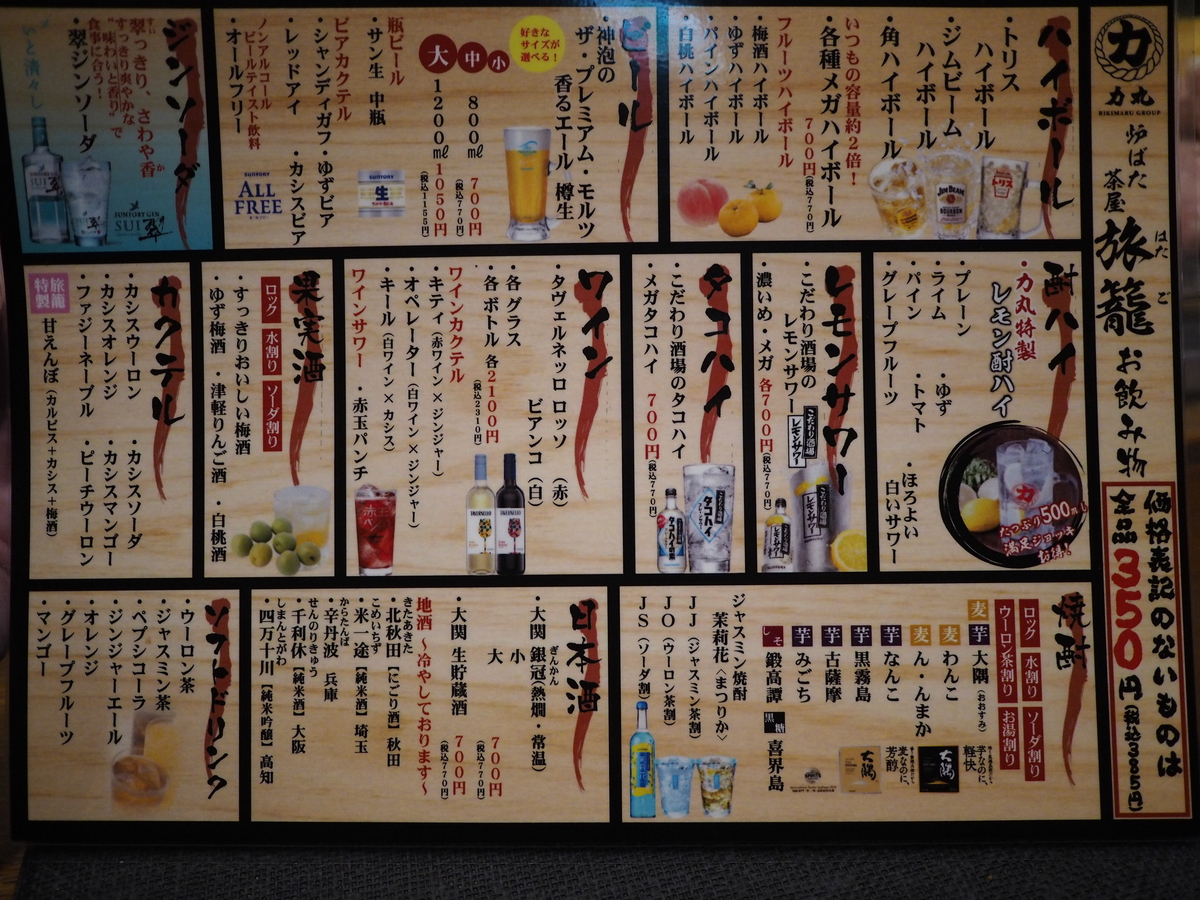 力
力丸
RIKIMARU GROUP
炉ばた
茶屋
旅籠
はたご
お飲み物
価格表記のないものは
全品350円(税込385円)
ハイボール
・トリス
ハイボール
・ジムビーム
ハイボール
・角ハイボール
いつもの容量約2倍!
・各種メガハイボール
700円(税込770円)
フルーツハイボール
・梅酒ハイボール
・ゆずハイボール
・パインハイボール
・白桃ハイボール
ビール
・神泡の
ザ・プレミアム・モルツ
香るエール 樽生
好きな
サイズが
選べる!
大 中 小
800㎖ 700円(税込770円)
1200㎖ 1050円(税込1155円)
瓶ビール
・サン生 中瓶
ビアカクテル
・シャンディガフ ・ゆずビア
・レッドアイ ・カシスビア
ノンアルコール
ビールテイスト飲料
・オールフリー
SUNTORY
生
SUNTORY
ALL
FREE
ジンソーダ
翠っきり、さわや香
すっきり爽やかな
“味わいと香り”で
食事に合う!
・翠ジンソーダ
SUI
JAPANESE GIN
SUI 翠
酎ハイ
・力丸特製
レモン酎ハイ
・プレーン
・ライム ・ゆず
・パイン ・トマト
・グレープフルーツ
・ほろよい
白いサワー
たっぷり500㎖
満足ジョッキ
お得!
レモンサワー
・こだわり酒場の
レモンサワー
・濃いめ・メガ 各700円(税込770円)
こだわり酒場
レモンサワー
タコハイ
・こだわり酒場のタコハイ
・メガタコハイ 700円(税込770円)
タコハイ
ワイン
・タヴェルネッロ ロッソ (赤)
ビアンコ (白)
・各グラス
・各ボトル 各2100円
(税込2310円)
ワインカクテル
・キティ(赤ワイン×ジンジャー)
・オペレーター(白ワイン×ジンジャー)
・キール(白ワイン×カシス)
ワインサワー ・赤玉パンチ
果実酒
ロック 水割り ソーダ割り
・すっきりおいしい梅酒
・ゆず梅酒 ・津軽りんご酒 ・白桃酒
カクテル
・カシスウーロン ・カシスソーダ
・カシスオレンジ ・カシスマンゴー
・ファジーネーブル ・ピーチウーロン
旅籠
特製
甘えんぼ(カルピス+カシス+梅酒)
焼酎
ロック 水割り ソーダ割り
ウーロン茶割り お湯割り
麦 芋 大隅(おおすみ)
麦 わんこ
麦 ん・んまか
芋 なんこ
芋 黒霧島
芋 古薩摩
芋 みごち
しそ 鍛高譚 黒糖 喜界島
芋なのに、
軽快
大隅
麦なのに、
芳醇
大隅
ジャスミン焼酎
茉莉花〈まつりか〉
JJ(ジャスミン茶割)
JO(ウーロン茶割)
JS(ソーダ割)
日本酒
・大関 銀冠(熱燗・常温)
ぎんかん
小
大 700円(税込770円)
・大関 生貯蔵酒 700円(税込770円)
地酒 ~冷やしております~
きたあきた
・北秋田【にごり酒】秋田
こめいちず
・米一途【純米酒】埼玉
からたんば
・辛丹波 兵庫
せんのりきゅう
・千利休【純米酒】大阪
しまんとがわ
・四万十川【純米吟醸】高知
ソフトドリンク
・ウーロン茶
・ジャスミン茶
・ペプシコーラ
・ジンジャーエール
・オレンジ
・グレープフルーツ
・マンゴー